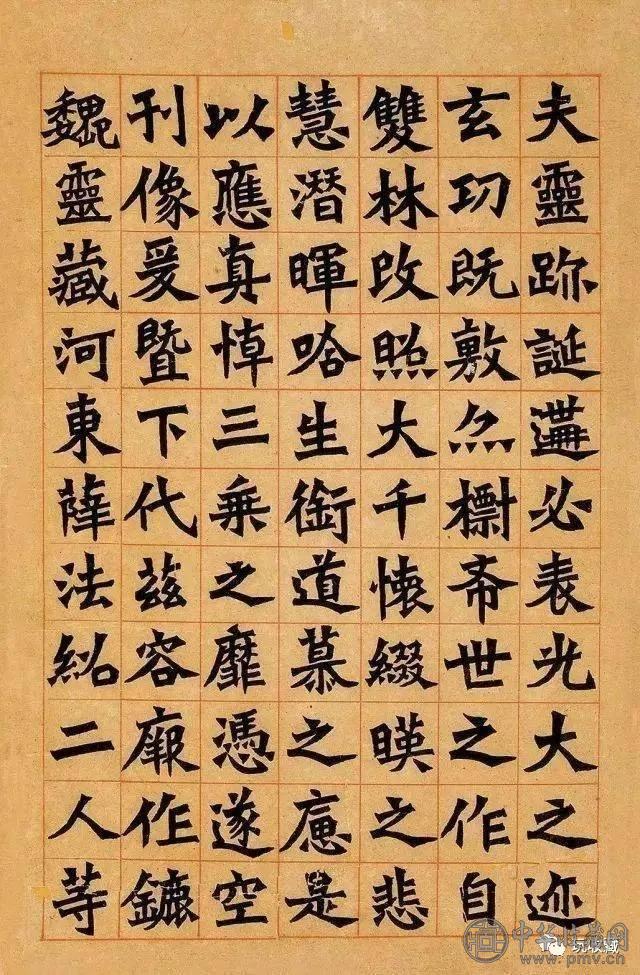 夫靈跡誕遘必表光大之迹
玄功既敷亦標希世之作自
雙林改照大千懷綴暎之悲
慧潛暉唅生銜道慕之是
以應真悼三乘之靡憑遂空
刊像爰暨下代茲容廓作鏕
魏靈藏河東薛法紹二人等
玩收藏
中华收藏网
www.pmv.cn